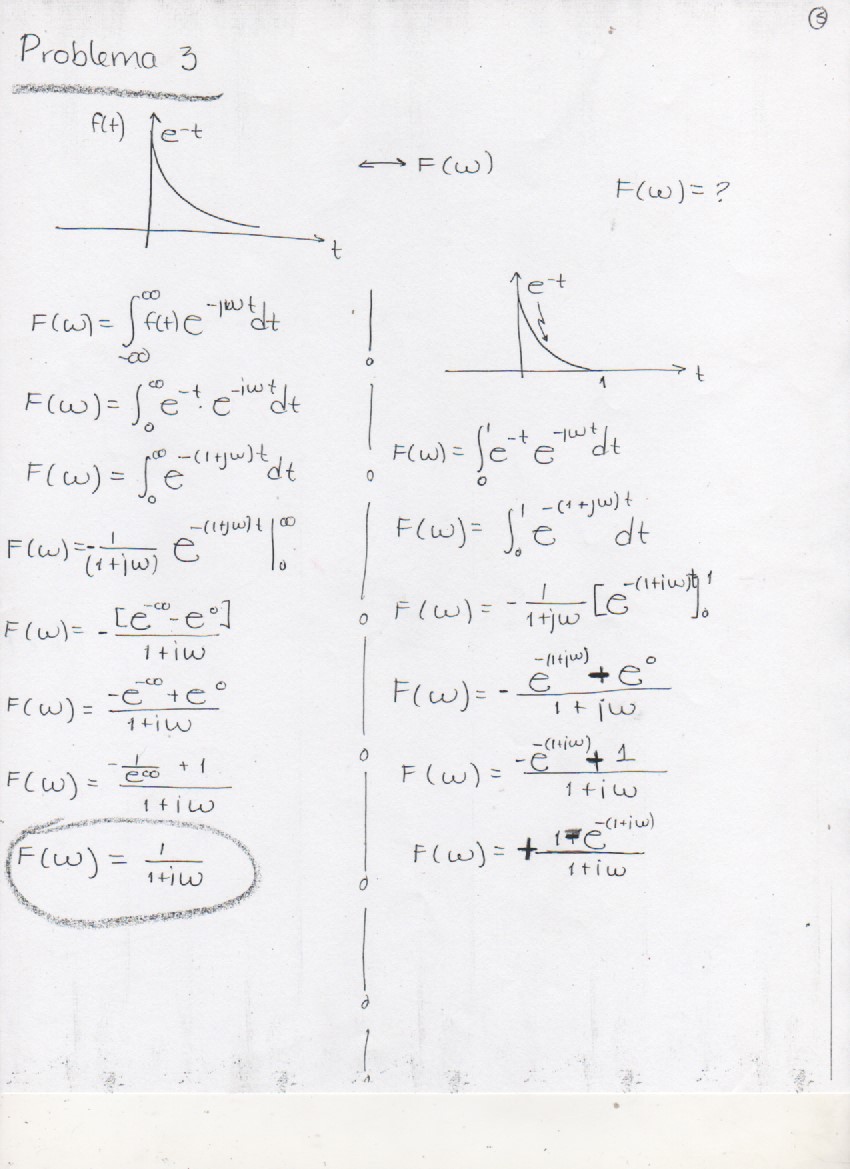 5
Problema 3
f(t) e^{-t}
t
↔ F(ω)
F(ω) = ?
F(ω) = ∫_{-∞}^{∞} f(t) e^{-jωt} dt
F(ω) = ∫_0^∞ e^{-t} · e^{-jωt} dt
F(ω) = ∫_0^∞ e^{-(1+jω)t} dt
F(ω) = -\frac{1}{(1+jω)} e^{-(1+jω)t} |_0^∞
F(ω) = -\frac{[e^{-∞} - e^0]}{1+iω}
F(ω) = \frac{-e^{-∞} + e^0}{1+iω}
F(ω) = \frac{-\frac{1}{e^∞} + 1}{1+iω}
F(ω) = \frac{1}{1+jω}
e^{-t}
1 t
F(ω) = ∫_0^1 e^{-t} e^{-jωt} dt
F(ω) = ∫_0^1 e^{-(1+jω)t} dt
F(ω) = -\frac{1}{1+jω} [e^{-(1+iω)t}]_0^1
F(ω) = -\frac{e^{-(1+jω)} + e^0}{1+jω}
F(ω) = \frac{-e^{-(1+iω)} + 1}{1+iω}
F(ω) = +\frac{1-e^{-(1+iω)}}{1+iω}